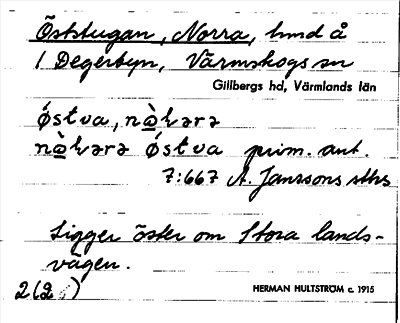 Öststugan, Norra, hmd å
1 Degerbyn, Värmskogs sn
Gillbergs hd, Värmlands län
ǿstva, nò̱kərə
nò̱kərə ǿstva prim. ant.
7:667 A. Janssons sthg
Ligger öster om Stora lands-
vägen.
2(2 )
HERMAN HULTSTRÖM c. 1915